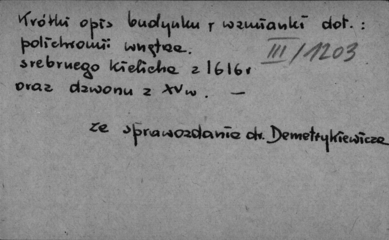 Krótki opis budynku r wzmianki dot. :
polichromii wnętrza.
III/1203
srebrnego kielicha z 1616 r
oraz dzwonu z XV w. —
ze sprawozdania dr. Demetrykiewicza